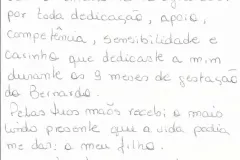 por toda dedicação, apoio,
competência, sensibilidade e
carinho que dedicaste a mim
durante os 9 meses de gestação
do Bernardo.
Pelas tuas mãos recebi o mais
lindo presente que a vida podia
me dar: o meu filho.